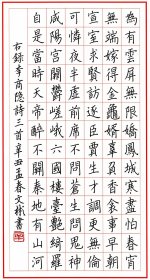 為有雲屏無限嬌鳳城寒盡怕春宵
無端嫁得金龜婿辜負香衾事早朝
宣室求賢訪逐臣賈生才調更無倫
可憐夜半虛前席不問蒼生問鬼神
咸陽宮闕鬱嵯峨六國樓臺艷綺羅
自是當時天帝醉不關秦地有山河
右錄李商隱詩三首辛丑孟春文彬書